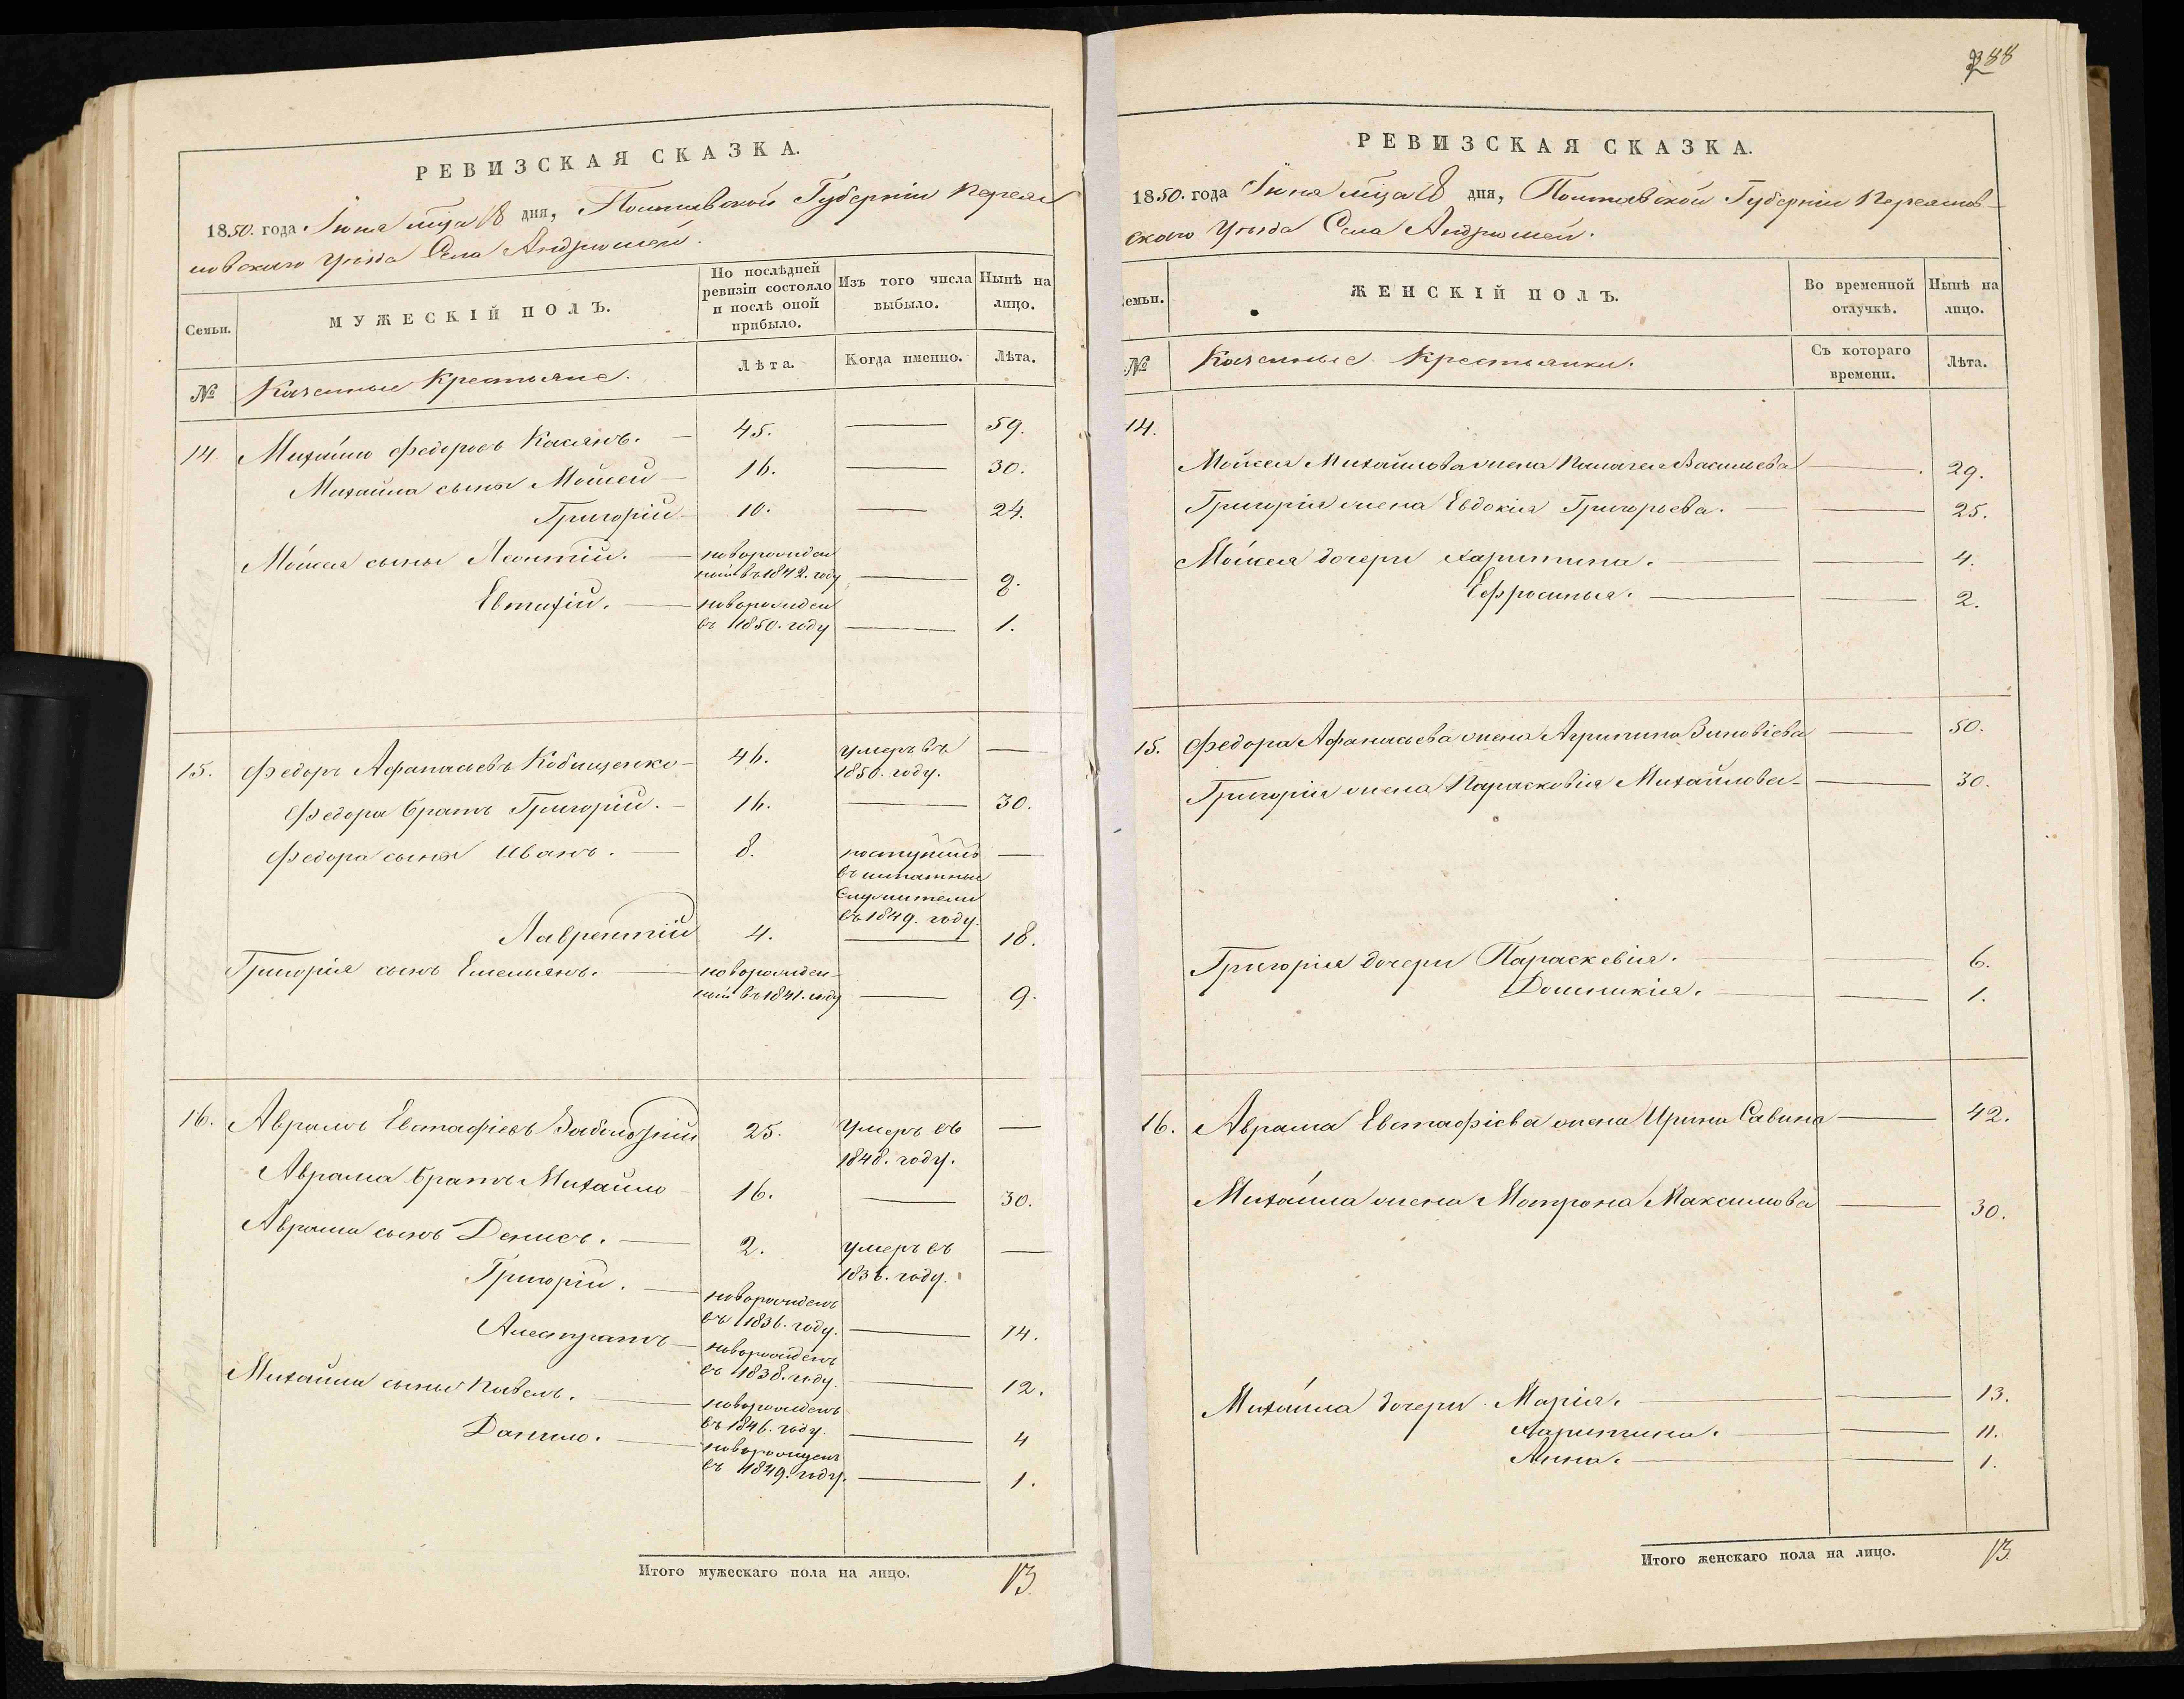 РЕВИЗСКАЯ СКАЗКА.
1850. года Іюня мѣца 18 дня, Полтавской Губерніи Переяс
ловского Уѣзда Села Андрюшей.
Семьи.
МУЖЕСКІЙ ПОЛЪ.
По послѣдней ревизіи состояло и послѣ оной прибыло.
Изъ того числа выбыло.
Нынѣ на лицо.
№
Казенные Крестьяне.
Лѣта.
Когда именно.
Лѣта.
14. Михайло Федоровъ Касянъ. 45. 59.
Михайла сыны Мойсей 16. 30.
Григорій 10. 24.
Мойсея сыны Леонтій. новорожден
ный въ 1842. году 8.
Евтихій. новорожден
въ 1850. году 1.
15. Федоръ Афанасьевъ Кобищенко 46. умеръ въ
1850. году.
Федора братъ Григорій. 16. 30.
Федора сыны Иванъ. 8. поступилъ
въ штатные
служители
въ 1849. году.
Лаврентій 4. 18.
Григорія сынъ Емельянъ. новорожден
ный въ 1841. году 9.
16. Аврамъ Евстафіевъ Заболозній 25. Умеръ въ
1848. году.
Аврама братъ Михайло 16. 30.
Аврама сынъ Денисъ. 2. умеръ въ
1836. году.
Григорій. новорожденъ
въ 1836. году. 14.
Алистратъ новорожденъ
въ 1838. году. 12.
Михайла сыны Павелъ. новорожденъ
въ 1846. году. 4
Данило. новорожденъ
въ 1849. году. 1.
Итого мужескаго пола на лицо. 13.
288
РЕВИЗСКАЯ СКАЗКА.
1850. года Іюня мѣца 18 дня, Полтавской Губерніи Переяслов-
ского Уѣзда Села Андрюшей.
Семьи.
ЖЕНСКІЙ ПОЛЪ.
Во временной отлучкѣ.
Нынѣ на лицо.
№
Казенные Крестьянки.
Съ котораго времени.
Лѣта.
14.
Мойсея Михайлова жена Пелагея Васильева 29.
Григорія жена Евдокія Григорьева. 25.
Мойсея дочери Харитина. 4.
Ефросинья. 2.
15. Федора Афанасьева жена Агрипина Зиновіева 50.
Григорія жена Парасковія Михайлова 30.
Григорія дочери Параскевія. 6.
Домникія. 1.
16. Аврама Евстафіева жена Ирина Савина 42.
Михайла жена Мотрона Максимова 30.
Михайла дочери Марія. 13.
Харитина. 11.
Анна. 1.
Итого женскаго пола на лицо. 13.